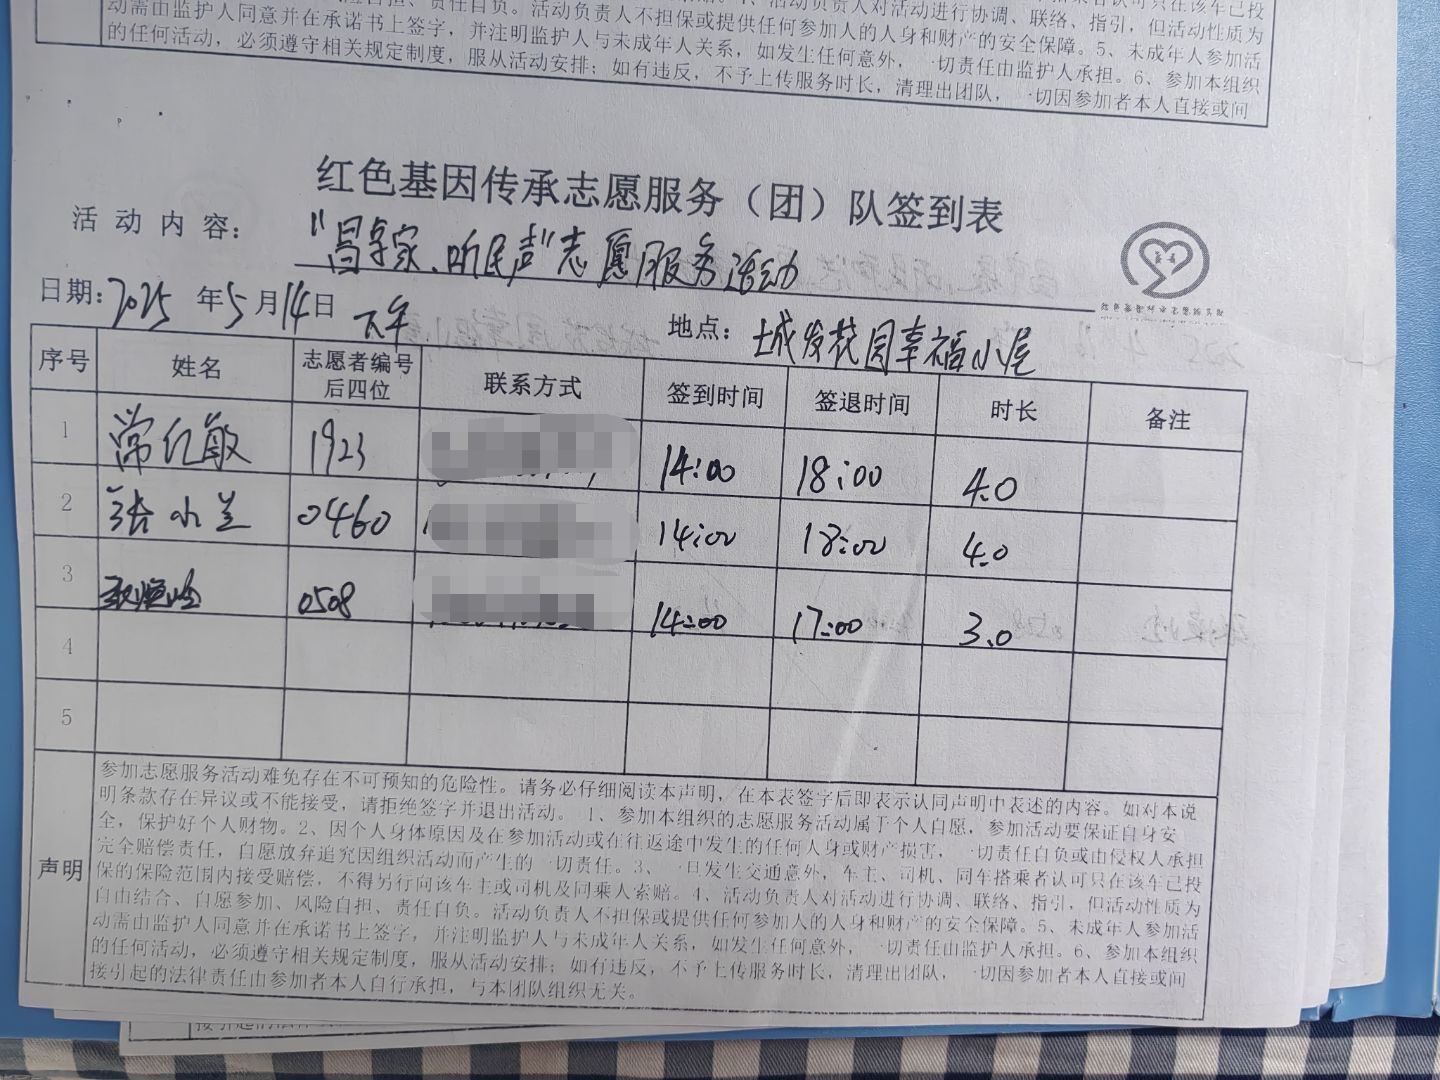 动需由监护人同意并在承诺书上签字，并注明监护人与未成年人关系，如发生任何意外，一切责任由监护人承担。6、参加本组织
的任何活动，必须遵守相关规定制度，服从活动安排；如有违反，不予上传服务时长，清理出团队，一切因参加者本人直接或间
红色基因传承志愿服务（团）队签到表
活动内容：
听民声"志愿服务活动
日期：2025年5月14日 下午
地点：城发花园幸福小屋
序号 姓名 志愿者编号后四位 联系方式 签到时间 签退时间 时长 备注
1 常红敏 1923 14:00 18:00 4.0
2 张小兰 0460 14:00 18:00 4.0
3 0508 14:00 17:00 3.0
4
5
声明
参加志愿服务活动难免存在不可预知的危险性。请务必仔细阅读本声明，在本表签字后即表示认同声明中表述的内容。如对本说
明条款存在异议或不能接受，请拒绝签字并退出活动。1、参加本组织的志愿服务活动属于个人自愿，参加活动要保证自身安
全，保护好个人财物。2、因个人身体原因及在参加活动或在往返途中发生的任何人身或财产损害，一切责任自负或由侵权人承担
完全赔偿责任，自愿放弃追究因组织活动而产生的一切责任。3、一旦发生交通意外，车主、司机、同车搭乘者认可只在该车已投
保的保险范围内接受赔偿，不得另行向该车主或司机及同乘人索赔。4、活动负责人对活动进行协调、联络、指引，但活动性质为
自由结合、自愿参加、风险自担、责任自负。活动负责人不担保或提供任何参加人的人身和财产的安全保障。5、未成年人参加活
动需由监护人同意并在承诺书上签字，并注明监护人与未成年人关系，如发生任何意外，一切责任由监护人承担。6、参加本组织
的任何活动，必须遵守相关规定制度，服从活动安排；如有违反，不予上传服务时长，清理出团队，一切因参加者本人直接或间
接引起的法律责任由参加者本人自行承担，与本团队组织无关。